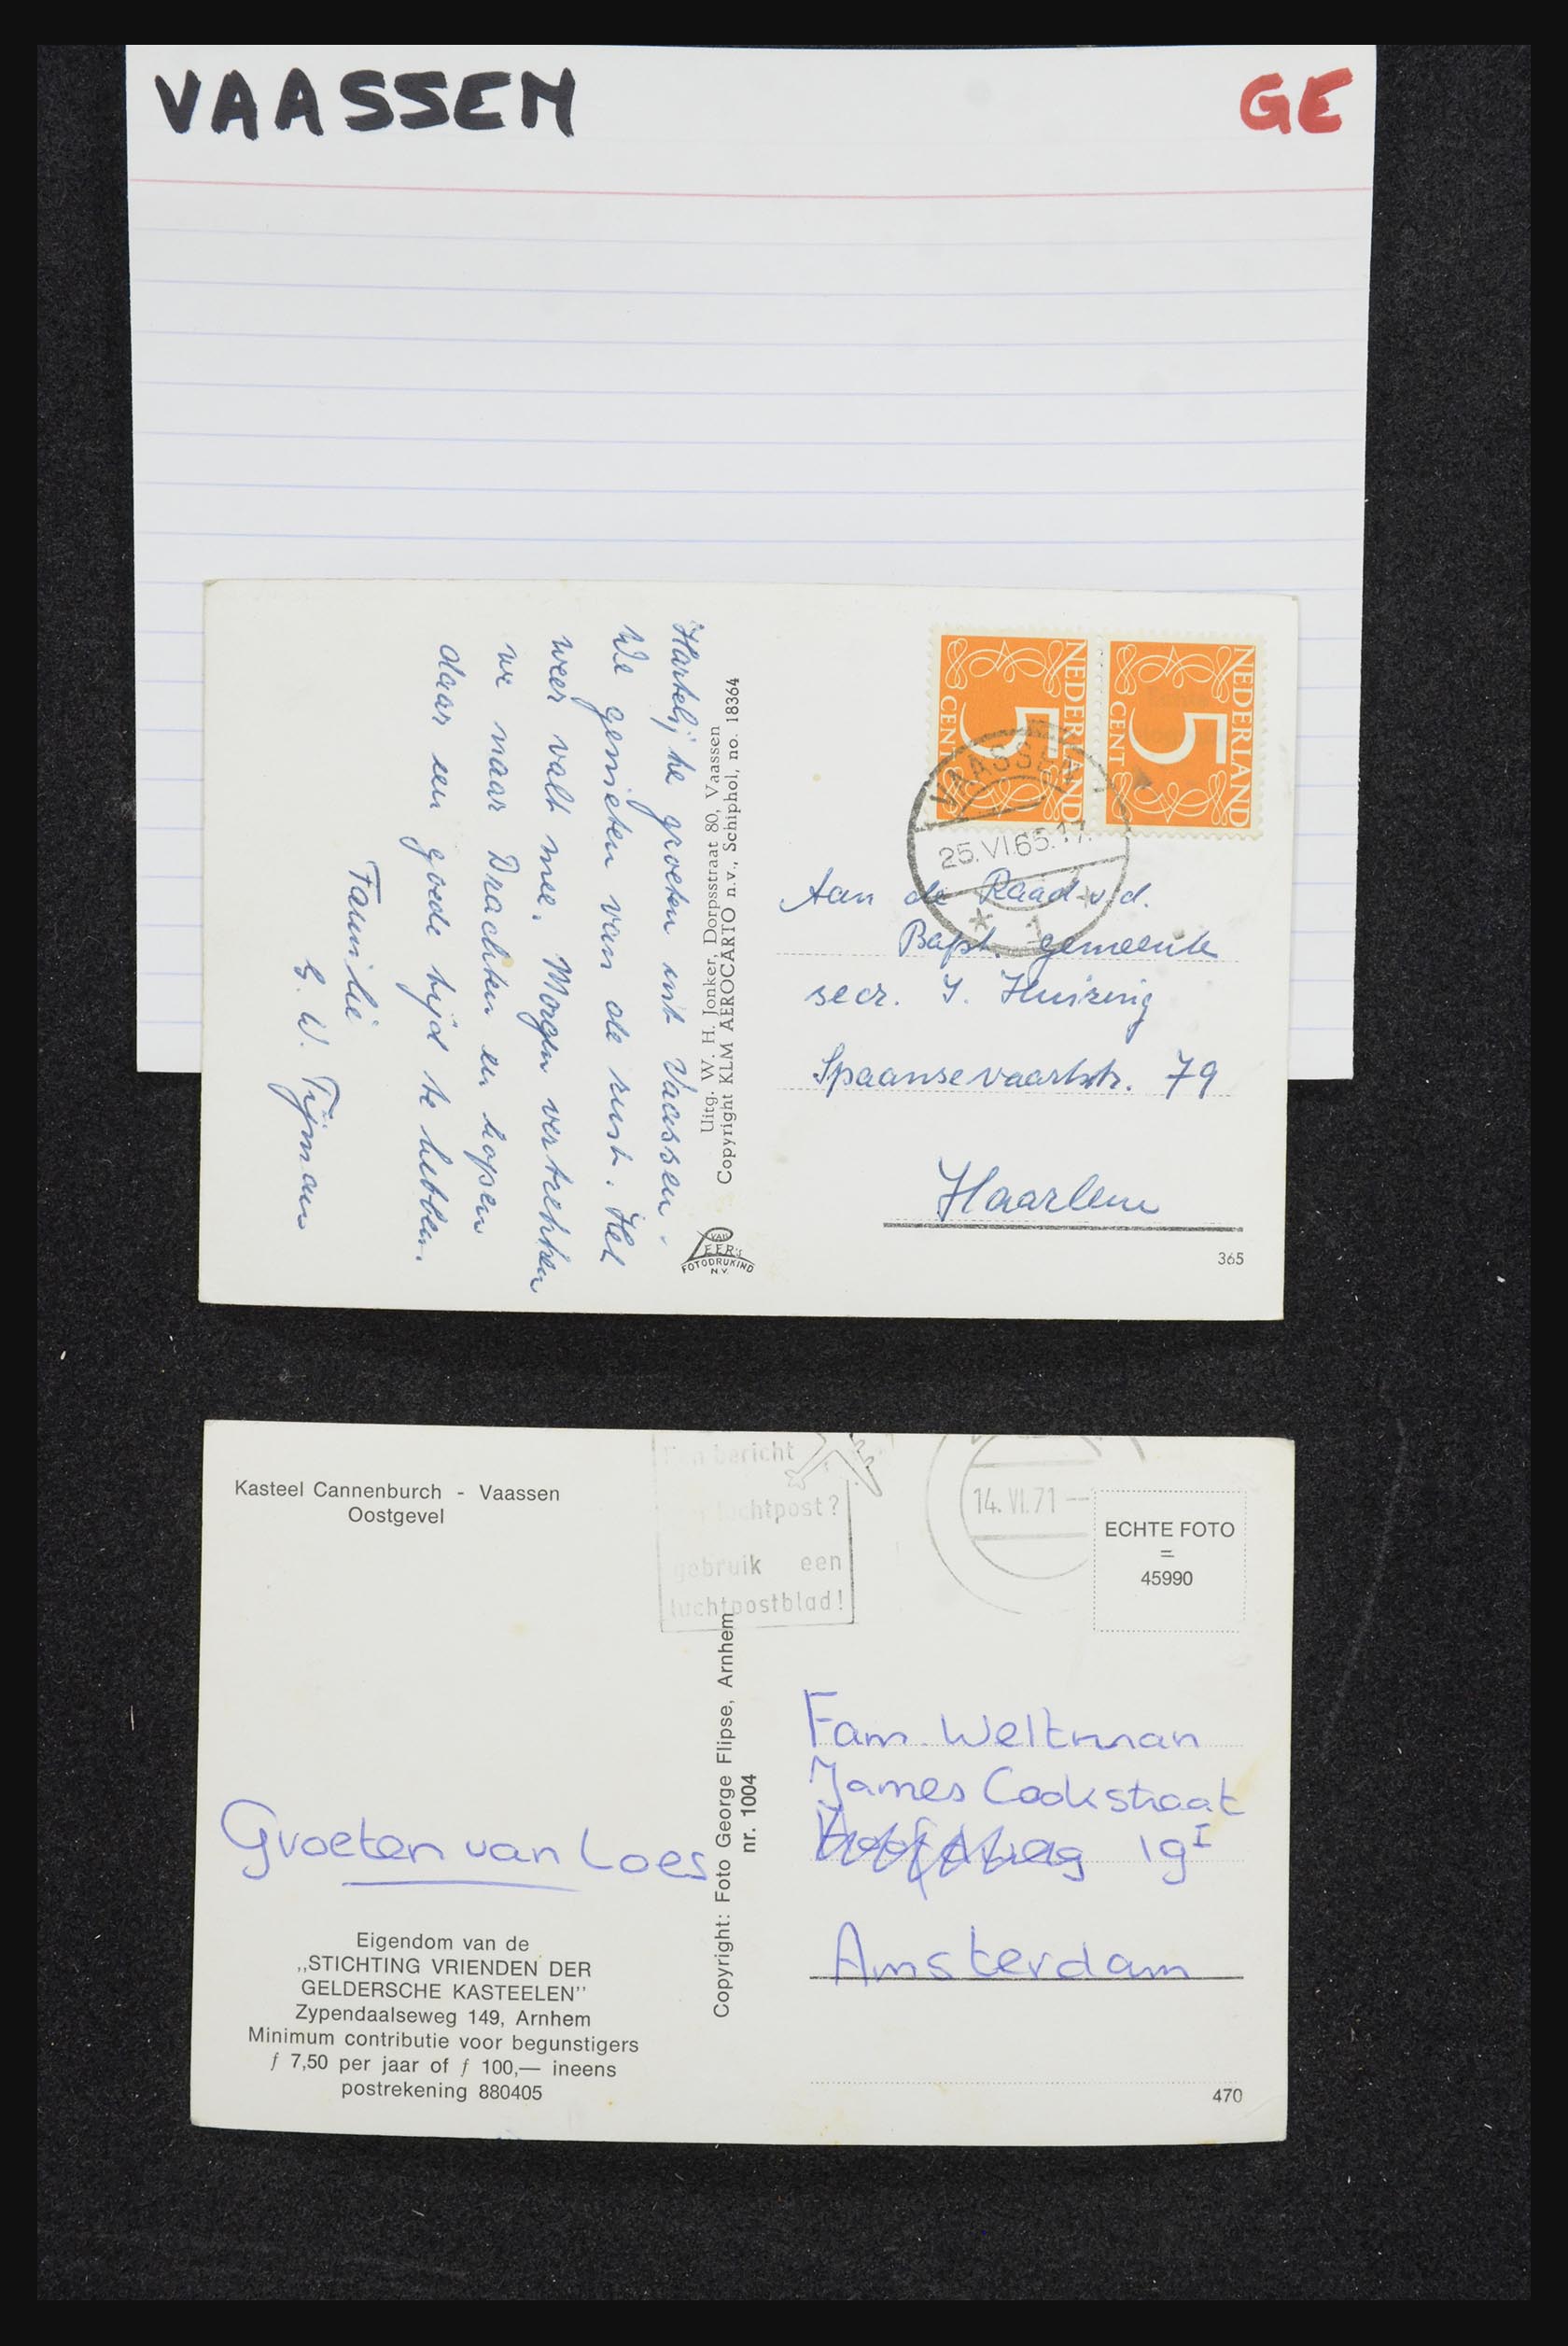 VAASSEN
GE
Hartelijke groeten uit Vaassen.
We genieten van de rust. Het
weer valt mee. Morgen vertrekken
we naar Drachten en hopen
daar een goede tijd te hebben.
Familie
G. W. Tijman
Uitg. W. H. Jonker, Dorpsstraat 80, Vaassen
Copyright KLM AEROCARTO n.v., Schiphol, no. 18364
VAN
LEER'S
FOTODRUKIND
N.V.
NEDERLAND
5
CENT
NEDERLAND
5
CENT
VAASSEN
25.VI.65.17.
* 1 *
Aan de Raad v.d.
Bapt. gemeente
secr. J. Huizing
Spaansevaartstr. 79
Haarlem
365
Kasteel Cannenburch - Vaassen
Oostgevel
Een bericht
luchtpost?
gebruik een
luchtpostblad!
14.VI.71
ECHTE FOTO
=
45990
Groeten van Loes
Eigendom van de
„STICHTING VRIENDEN DER
GELDERSCHE KASTEELEN”
Zypendaalseweg 149, Arnhem
Minimum contributie voor begunstigers
ƒ 7,50 per jaar of ƒ 100,— ineens
postrekening 880405
Copyright: Foto George Flipse, Arnhem
nr. 1004
Fam. Weltman
James Cookstraat
19 I
Amsterdam
470